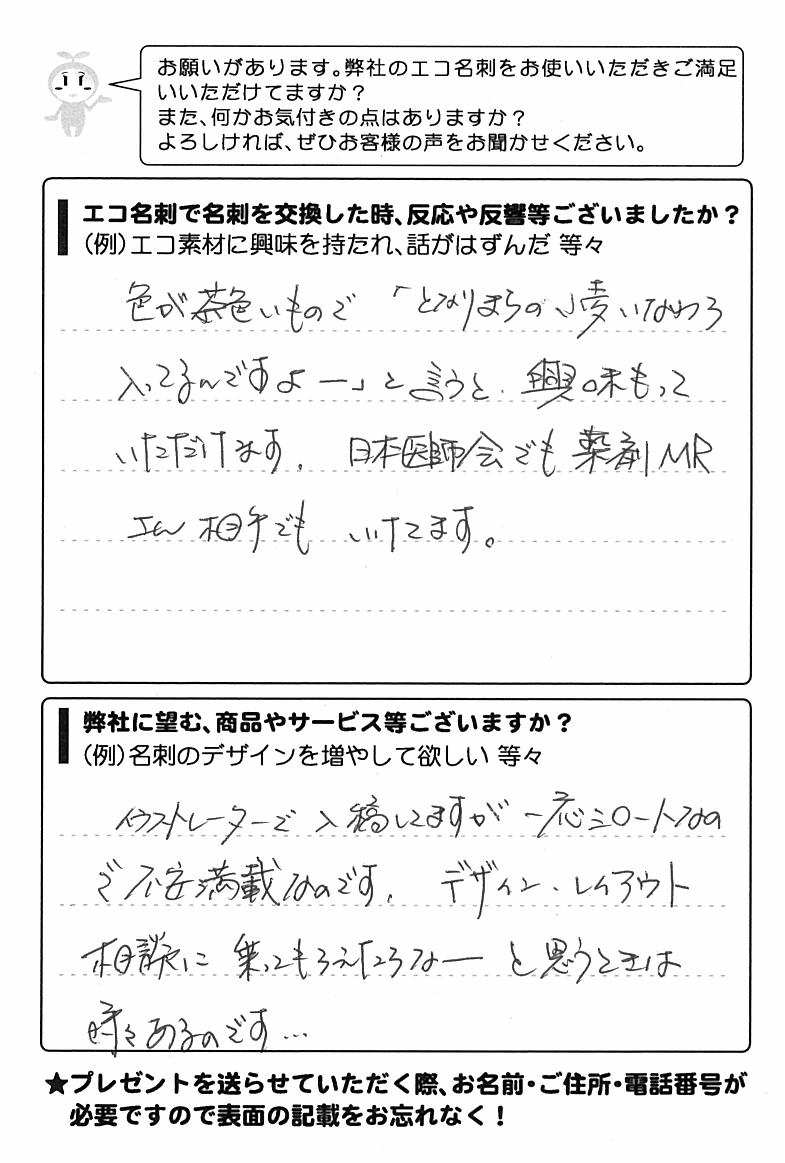 お願いがあります。弊社のエコ名刺をお使いいただきご満足
いいただけてますか？
また、何かお気付きの点はありますか？
よろしければ、ぜひお客様の声をお聞かせください。
エコ名刺で名刺を交換した時、反応や反響等ございましたか？
（例）エコ素材に興味を持たれ、話がはずんだ 等々
色が茶色いもので 「
入ってるんですよー」と言うと、興味もって
いただけます。日本医師会でも薬剤MR
さん相手でも いけてます。
弊社に望む、商品やサービス等ございますか？
（例）名刺のデザインを増やして欲しい 等々
イラストレーターで入稿してますが一応シロートなの
で不安満載なのです。デザイン・レイアウト
相談に乗ってもらえたらなーと思うときは
時々あるのです…
★プレゼントを送らせていただく際、お名前・ご住所・電話番号が
必要ですので表面の記載をお忘れなく！